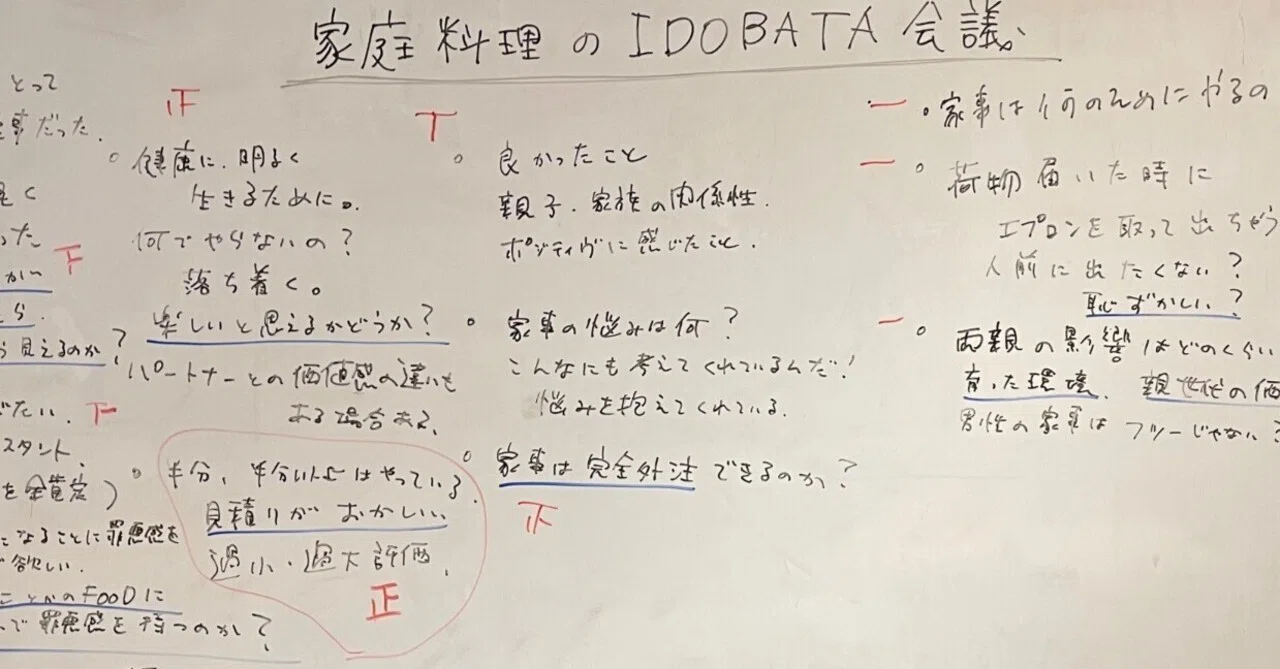 家庭料理のIDOBATA会議
とって
事だった。
った
見えるのか?
たい。
スタント、
になることに罪悪感を
欲しい.
FOODに
で罪悪感を持つのか?
正
下
下
健康に、明るく
生きるために。
何でやらないの?
落ち着く。
楽しいと思えるかどうか?
パートナーとの価値感の違いも
ある場合ある、
半分、半分以上はやっている。
見積りがおかしい、
過小・過大評価、
正
丁
良かったこと
親子、家族の関係性.
ポジティヴに感じたこと.
家事の悩みは何?
こんなにも考えてくれているんだ!
悩みを抱えてくれている.
家事は完全外注できるのか?
下
一
家事は何のためにやるの
一
荷物届いた時に
エプロンを取って出ちゃう
人前に出たくない?
恥ずかしい?
一
両親の影響はどのくらい
育った環境、親世代の価
男性の家事はフツーじゃない?